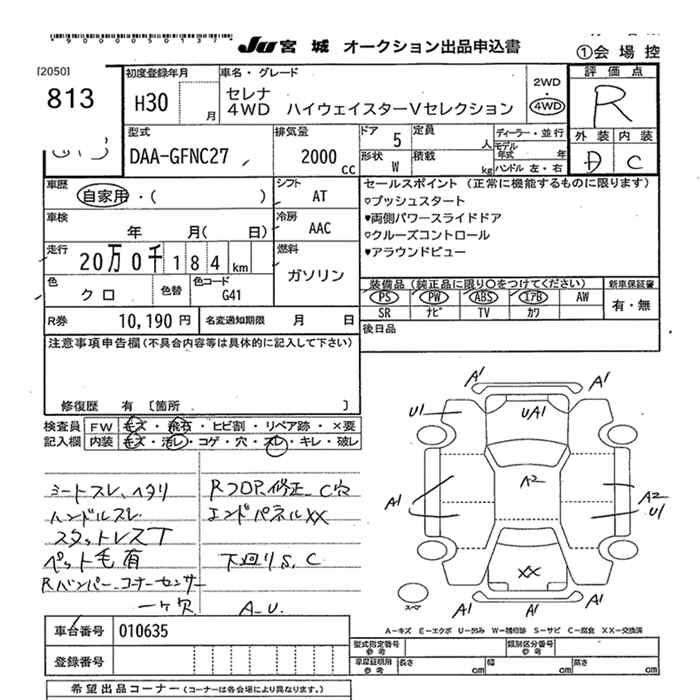 *9000005013 7*
JU 宮城 オークション出品申込書
①会場控
[2050]
813
初度登録年月
H30 月
車名・グレード
セレナ
4WD ハイウェイスターVセレクション
2WD
・
4WD
評価点
R
外装 内装
D C
型式
DAA-GFNC27
排気量
2000 cc
ドア 5
定員 人
形状 W
積載 kg
ディーラー・並行
モデル年式 年
ハンドル 左・右
車歴
自家用・( )
シフト
AT
車検
年 月( 日)
冷房
AAC
走行
20万0千184km
燃料
ガソリン
色
クロ
色替
色コード
G41
R券 10,190円
名変通知期限 月 日
セールスポイント (正常に機能するものに限ります)
♡プッシュスタート
♥両側パワースライドドア
♡クルーズコントロール
♥アラウンドビュー
装備品(純正品に限り〇をつけてください)
新車保証書
PS PW ABS エアB AW
SR ナビ TV カワ
有・無
後日品
注意事項申告欄(不具合内容等は具体的に記入して下さい)
修復歴 有 〔箇所 〕
検査員記入欄
FW キズ・飛石・ヒビ割・リペア跡・×要
内装 キズ・汚レ・コゲ・穴・スレ・キレ・破レ
シートスレ、ヘタリ
ハンドルスレ
スタットレスT
ペット毛有
Rバンパーコーナーセンサー
一ヶ欠
RフロP.修正、C穴
エンドパネルXX
下廻りS、C
A-U.
A1 A1
U1 UA1
A2
A1 A2
U1
XX
スペア
A1 A1 A1
A-キズ E-エクボ U-凹み W-補修跡 S-サビ C-腐食 XX-交換済
車台番号 010635
登録番号
型式指定番号 参考
類別区分番号 参考
車庫証明用 参考
長さ cm 幅 cm 高さ cm
希望出品コーナー (コーナーは各会場により異なります。)